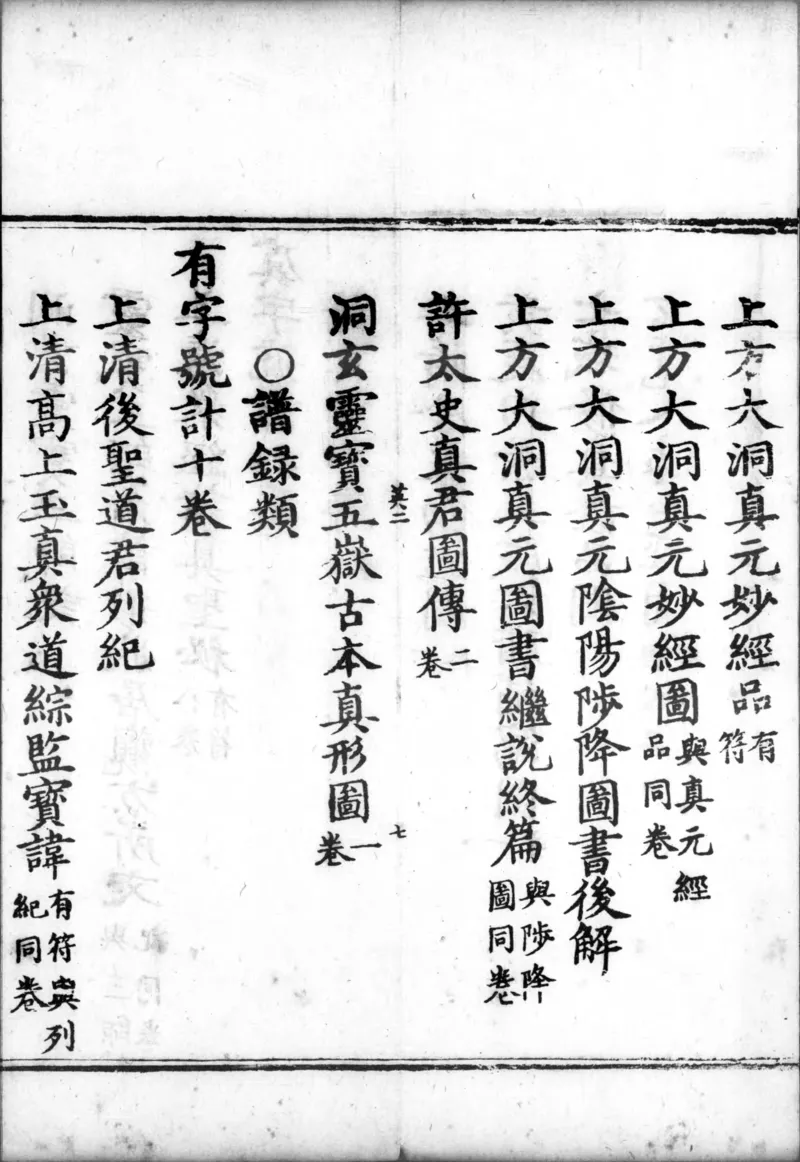 上方大洞真元妙經品有符
上方大洞真元妙經圖與真元經品同卷
上方大洞真元陰陽陟降圖書後解
上方大洞真元圖書繼說終篇與陟降圖同卷
許太史真君圖傳二卷
英二
七
洞玄靈寶五嶽古本真形圖一卷
〇譜録類
有字號計十卷
上清後聖道君列紀
上清高上玉真衆道綜監寶諱有符與列紀同卷